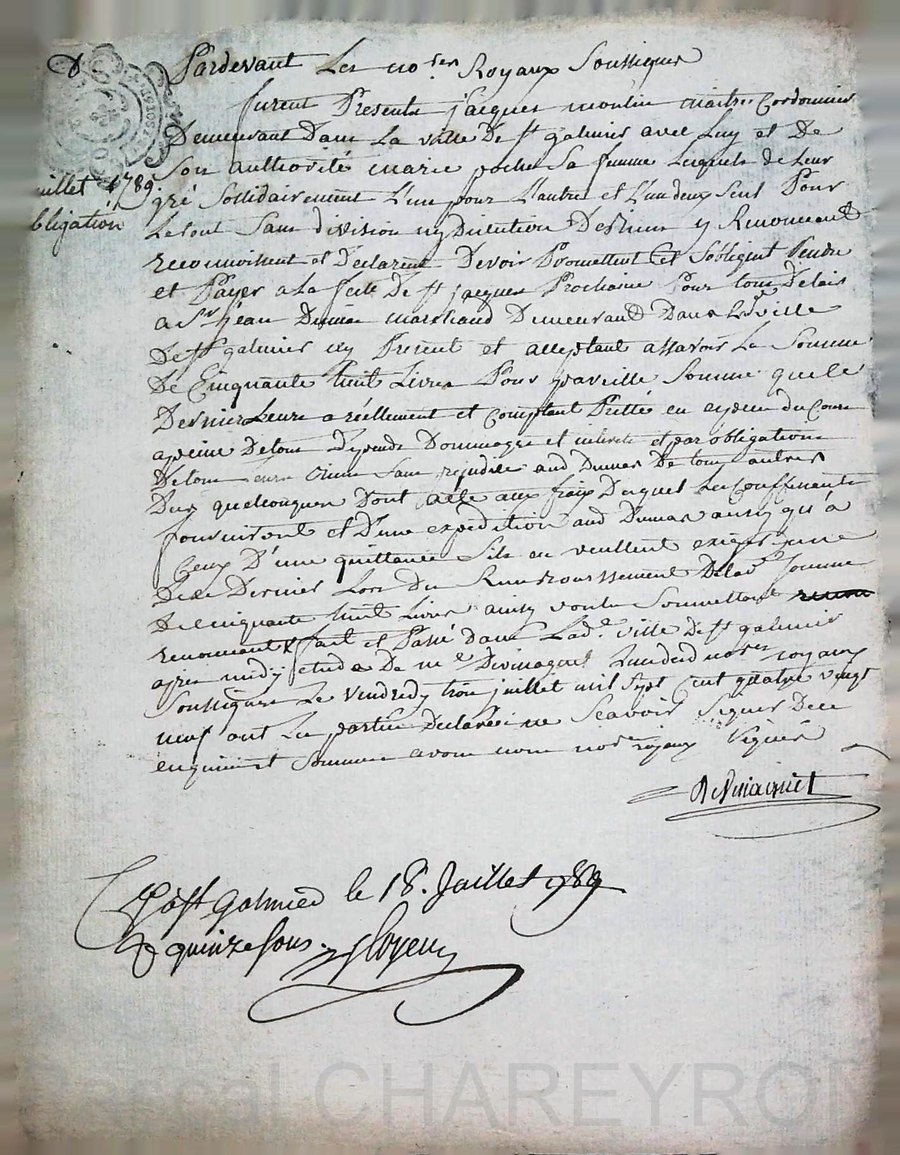 Pardevant Les no.res Royaux Soussignes
furent Presents jacques moulin maitre Cordonnier
Demeurant Dans La ville De st galmier avec Luy et De
Son authorité marie poche Sa femme Lesquels de Leur
juillet 1789.
obligation
gré Sollidairement L'un pour L'autre et L'un deux Seul Pour
Le tout Sans division ny Discution Desquels y Renonceant
reconnoissent et Declarent Devoir Promettent et S'obligent Rendre
et Payer a La feste De st jacques Prochaine Pour tous Delais
a Sr jean Dumas marchand Demeurant Dans Lade ville
De st galmier icy Present et acceptant assavoir La Somme
De Cinquante huit Livres Pour pareille Somme que le
Dernier Leur a réellement et Comptant Pretté en especes du Cours
a peine De tous Depends Dommages et interets et par obligation
De tous Sans Prejudice aud Dumas De tous autres
Dus quelconques Dont acte aux frais Duquel Les Confessants
fourniront et D'une expédition aud Dumas ainsy qu'à
Ceux D'une quittance Sils en veullent exiger une
Dernier Lors Du Remboursement De lade Somme
De cinquante huit Livres ainsy voulu Soumettant
renonceant fait et Passé Dans Lade ville De st galmier
apres midy etude De me Devinaquet L'un desd nores royaux
Soussignes Le vendredy trois juillet mil Sept Cent quatre vingt
neuf ont Les parties Declarées ne Scavoir Signer De ce
enquis et Sommes avons nous nores royaux Signés
Devinacquet
Cé à st Galmier le 18. Juillet 1789
R quinze sous.